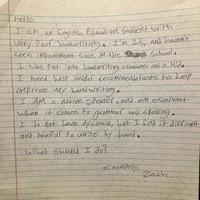 Hello,
I am an English Education student with
very poor handwriting. I'm 25, and haven't
seen improvement since Middle School.
I was put into handwriting classes as a kid.
I need help and/or recommendations to help
improve my handwriting.
I AM a native speaker, and am excellent
when it comes to grammar and spelling.
I do not have dyslexia, but I find it difficult
and painful to write by hand.
What should I do?
Sincerely,
Zach